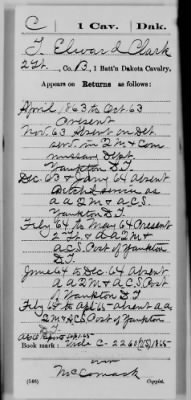 C | 1 Cav. | Dak.
T. Edward Clark
2 Lt., Co. B, 1 Batt'n Dakota Cavalry.
Appears on Returns as follows:
April, 1863 to Oct 63
Present
Nov. 63 Absent on Det.
serv. in 2 M & Com
missary Dept.
Yankton D.T.
Dec 63 & Jany 64 absent
Detached service as
a a 2 M & A.C.S.
Yankton D.T.
Feby 64 to May 64 Present
2 Lt. & A. A 2 M &
A.C.S. Post of Yankton
D.T.
June 64 to Dec 64 absent
A A 2 M & A.C.S. Post
of Yankton D.T.
Feby 65 to Apl 65 absent a a
2 M & A.C.S. Post of Yankton
D.T.
Book mark:
over
McCormack
(546) Copyist.